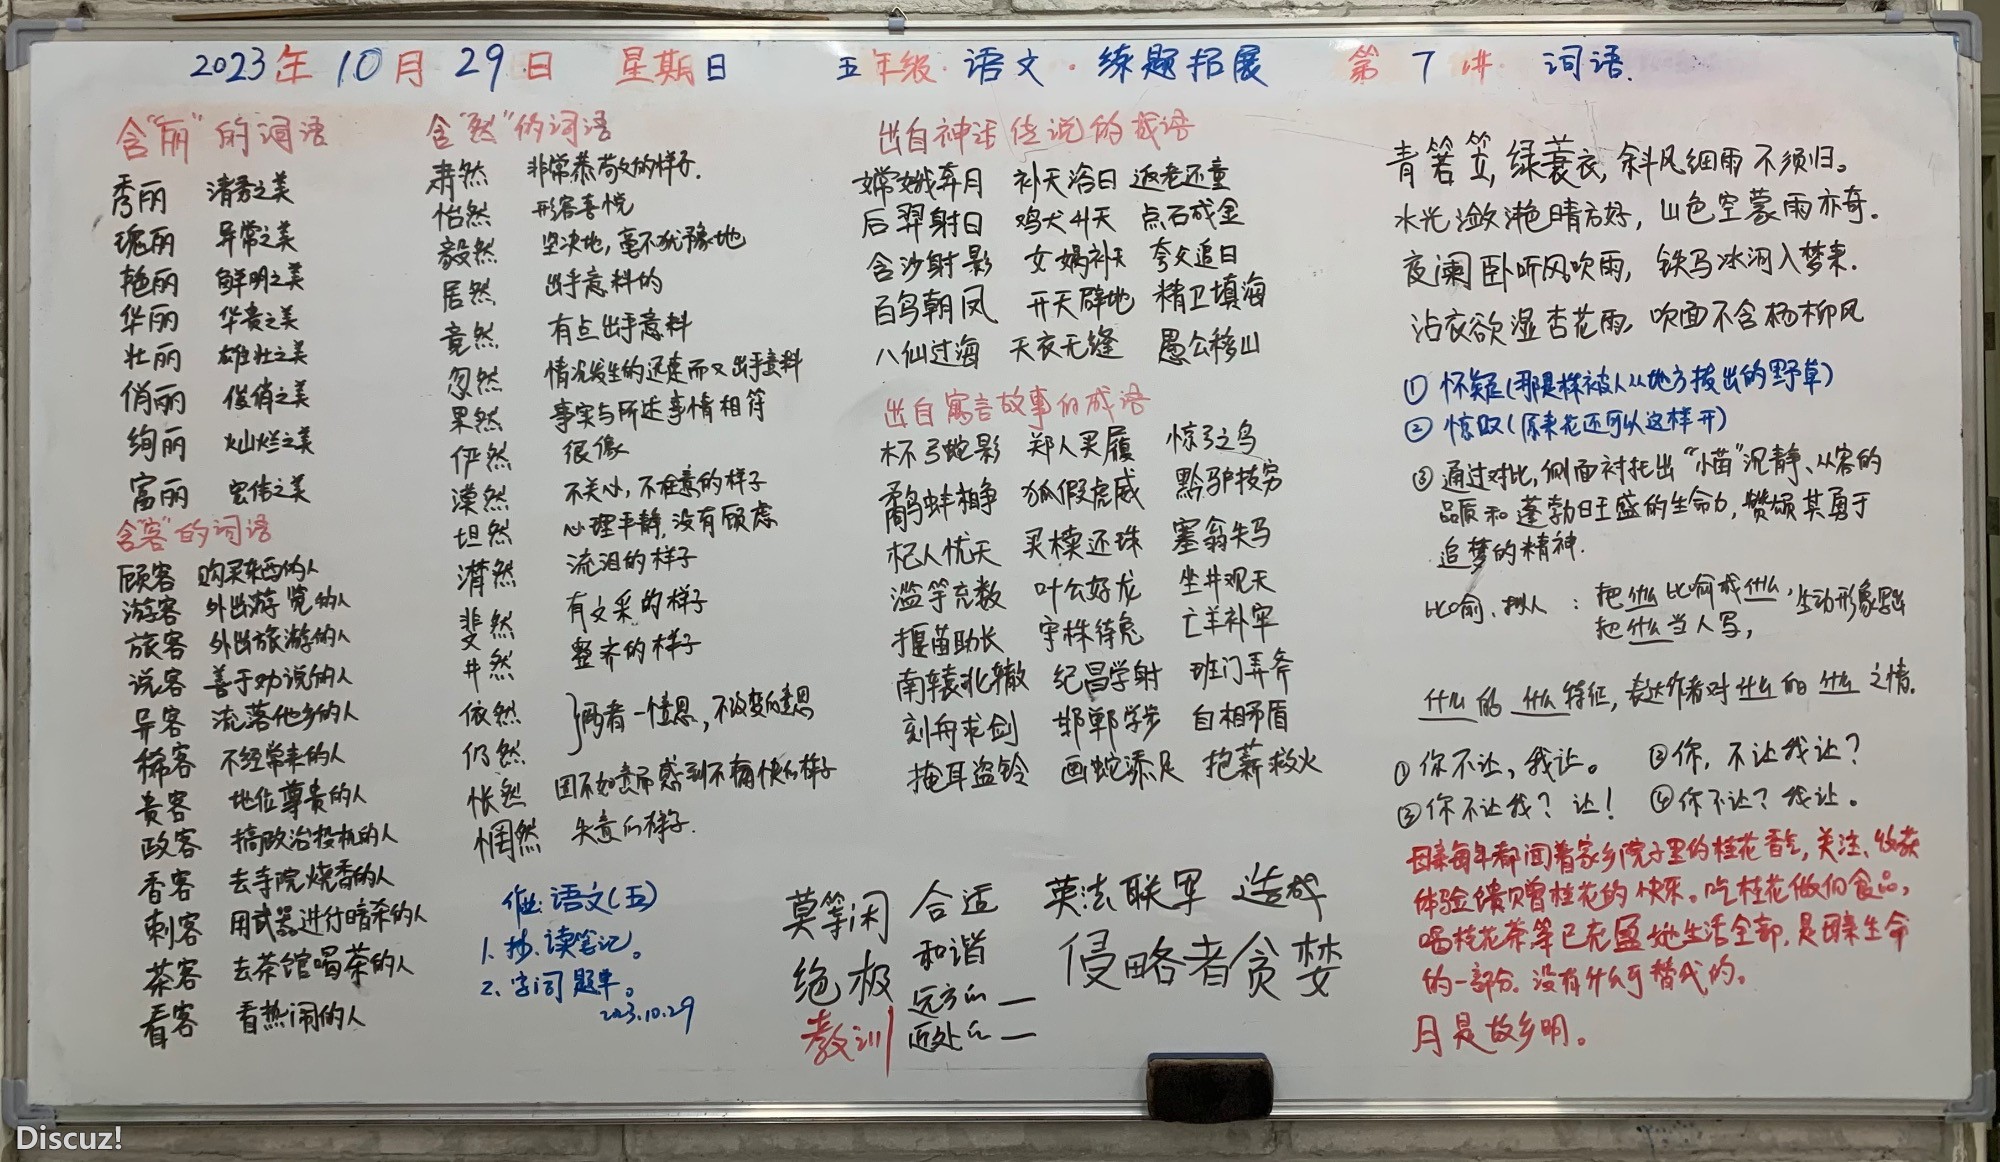 2023年10月29日 星期日 五年级·语文·练题拓展 第7讲 词语.
含"丽"的词语
秀丽 清秀之美
瑰丽 异常之美
艳丽 鲜明之美
华丽 华贵之美
壮丽 雄壮之美
俏丽 俊俏之美
绚丽 灿烂之美
富丽 宏伟之美
含"客"的词语
顾客 购买东西的人
游客 外出游览的人
旅客 外出旅游的人
说客 善于劝说的人
异客 流落他乡的人
稀客 不经常来的人
贵客 地位尊贵的人
政客 搞政治投机的人
香客 去寺院烧香的人
刺客 用武器进行暗杀的人
茶客 去茶馆喝茶的人
看客 看热闹的人
含"然"的词语
肃然 非常恭敬的样子.
怡然 形容喜悦
毅然 坚决地,毫不犹豫地
居然 出乎意料的
竟然 有点出乎意料
忽然 情况发生的迅速而又出乎意料
果然 事实与所述事情相符
俨然 很像
漠然 不关心,不在意的样子
坦然 心理平静,没有顾虑
潸然 流泪的样子
斐然 有文采的样子
井然 整齐的样子
依然
仍然
}两者一个意思,不改变的意思
怅然 因不如意而感到不痛快的样子
惘然 失意的样子.
作业:语文(五)
1.抄、读笔记。
2.字词题单。
2023.10.29
出自神话传说的成语
嫦娥奔月 补天浴日 返老还童
后羿射日 鸡犬升天 点石成金
含沙射影 女娲补天 夸父追日
百鸟朝凤 开天辟地 精卫填海
八仙过海 天衣无缝 愚公移山
出自寓言故事的成语
杯弓蛇影 郑人买履 惊弓之鸟
鹬蚌相争 狐假虎威 黔驴技穷
杞人忧天 买椟还珠 塞翁失马
滥竽充数 叶公好龙 坐井观天
揠苗助长 守株待兔 亡羊补牢
南辕北辙 纪昌学射 班门弄斧
刻舟求剑 邯郸学步 自相矛盾
掩耳盗铃 画蛇添足 抱薪救火
莫等闲 合适 英法联军 造成
绝极 和谐 侵略者贪婪
远方的—
教训 近处的—
青箬笠,绿蓑衣,斜风细雨不须归。
水光潋滟晴方好,山色空蒙雨亦奇.
夜阑卧听风吹雨,铁马冰河入梦来.
沾衣欲湿杏花雨,吹面不含杨柳风
①怀疑(那是株被人从地方拔出的野草)
②惊叹(原来花还可以这样开)
③通过对比,侧面衬托出"小苗"沉静、从容的
品质和蓬勃旺盛的生命力,赞颂其勇于
追梦的精神.
比喻、拟人:把什么比喻成什么,生动形象写出
把什么当人写,
什么的什么特征,表达作者对什么的什么之情.
①你不让,我让。 ②你,不让我让?
③你不让我?让! ④你不让?我让。
母亲每年都闻着家乡院子里的桂花香气,关注、收获
体验馈赠桂花的快乐。吃桂花做的食品,
喝桂花茶等已充盈她生活全部,是母亲生命
的一部分。没有什么可替代的。
月是故乡明。
Discuz!